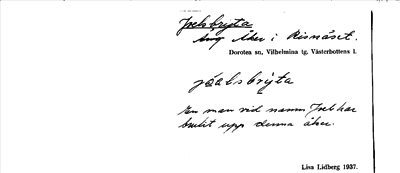 Joelsbryta
Äng Åker i Risnäset.
Dorotea sn, Vilhelmina tg. Västerbottens l.
jóəlsbrỳta
En man vid namn Joel har
brutit upp denna åker.
Lisa Lidberg 1937.